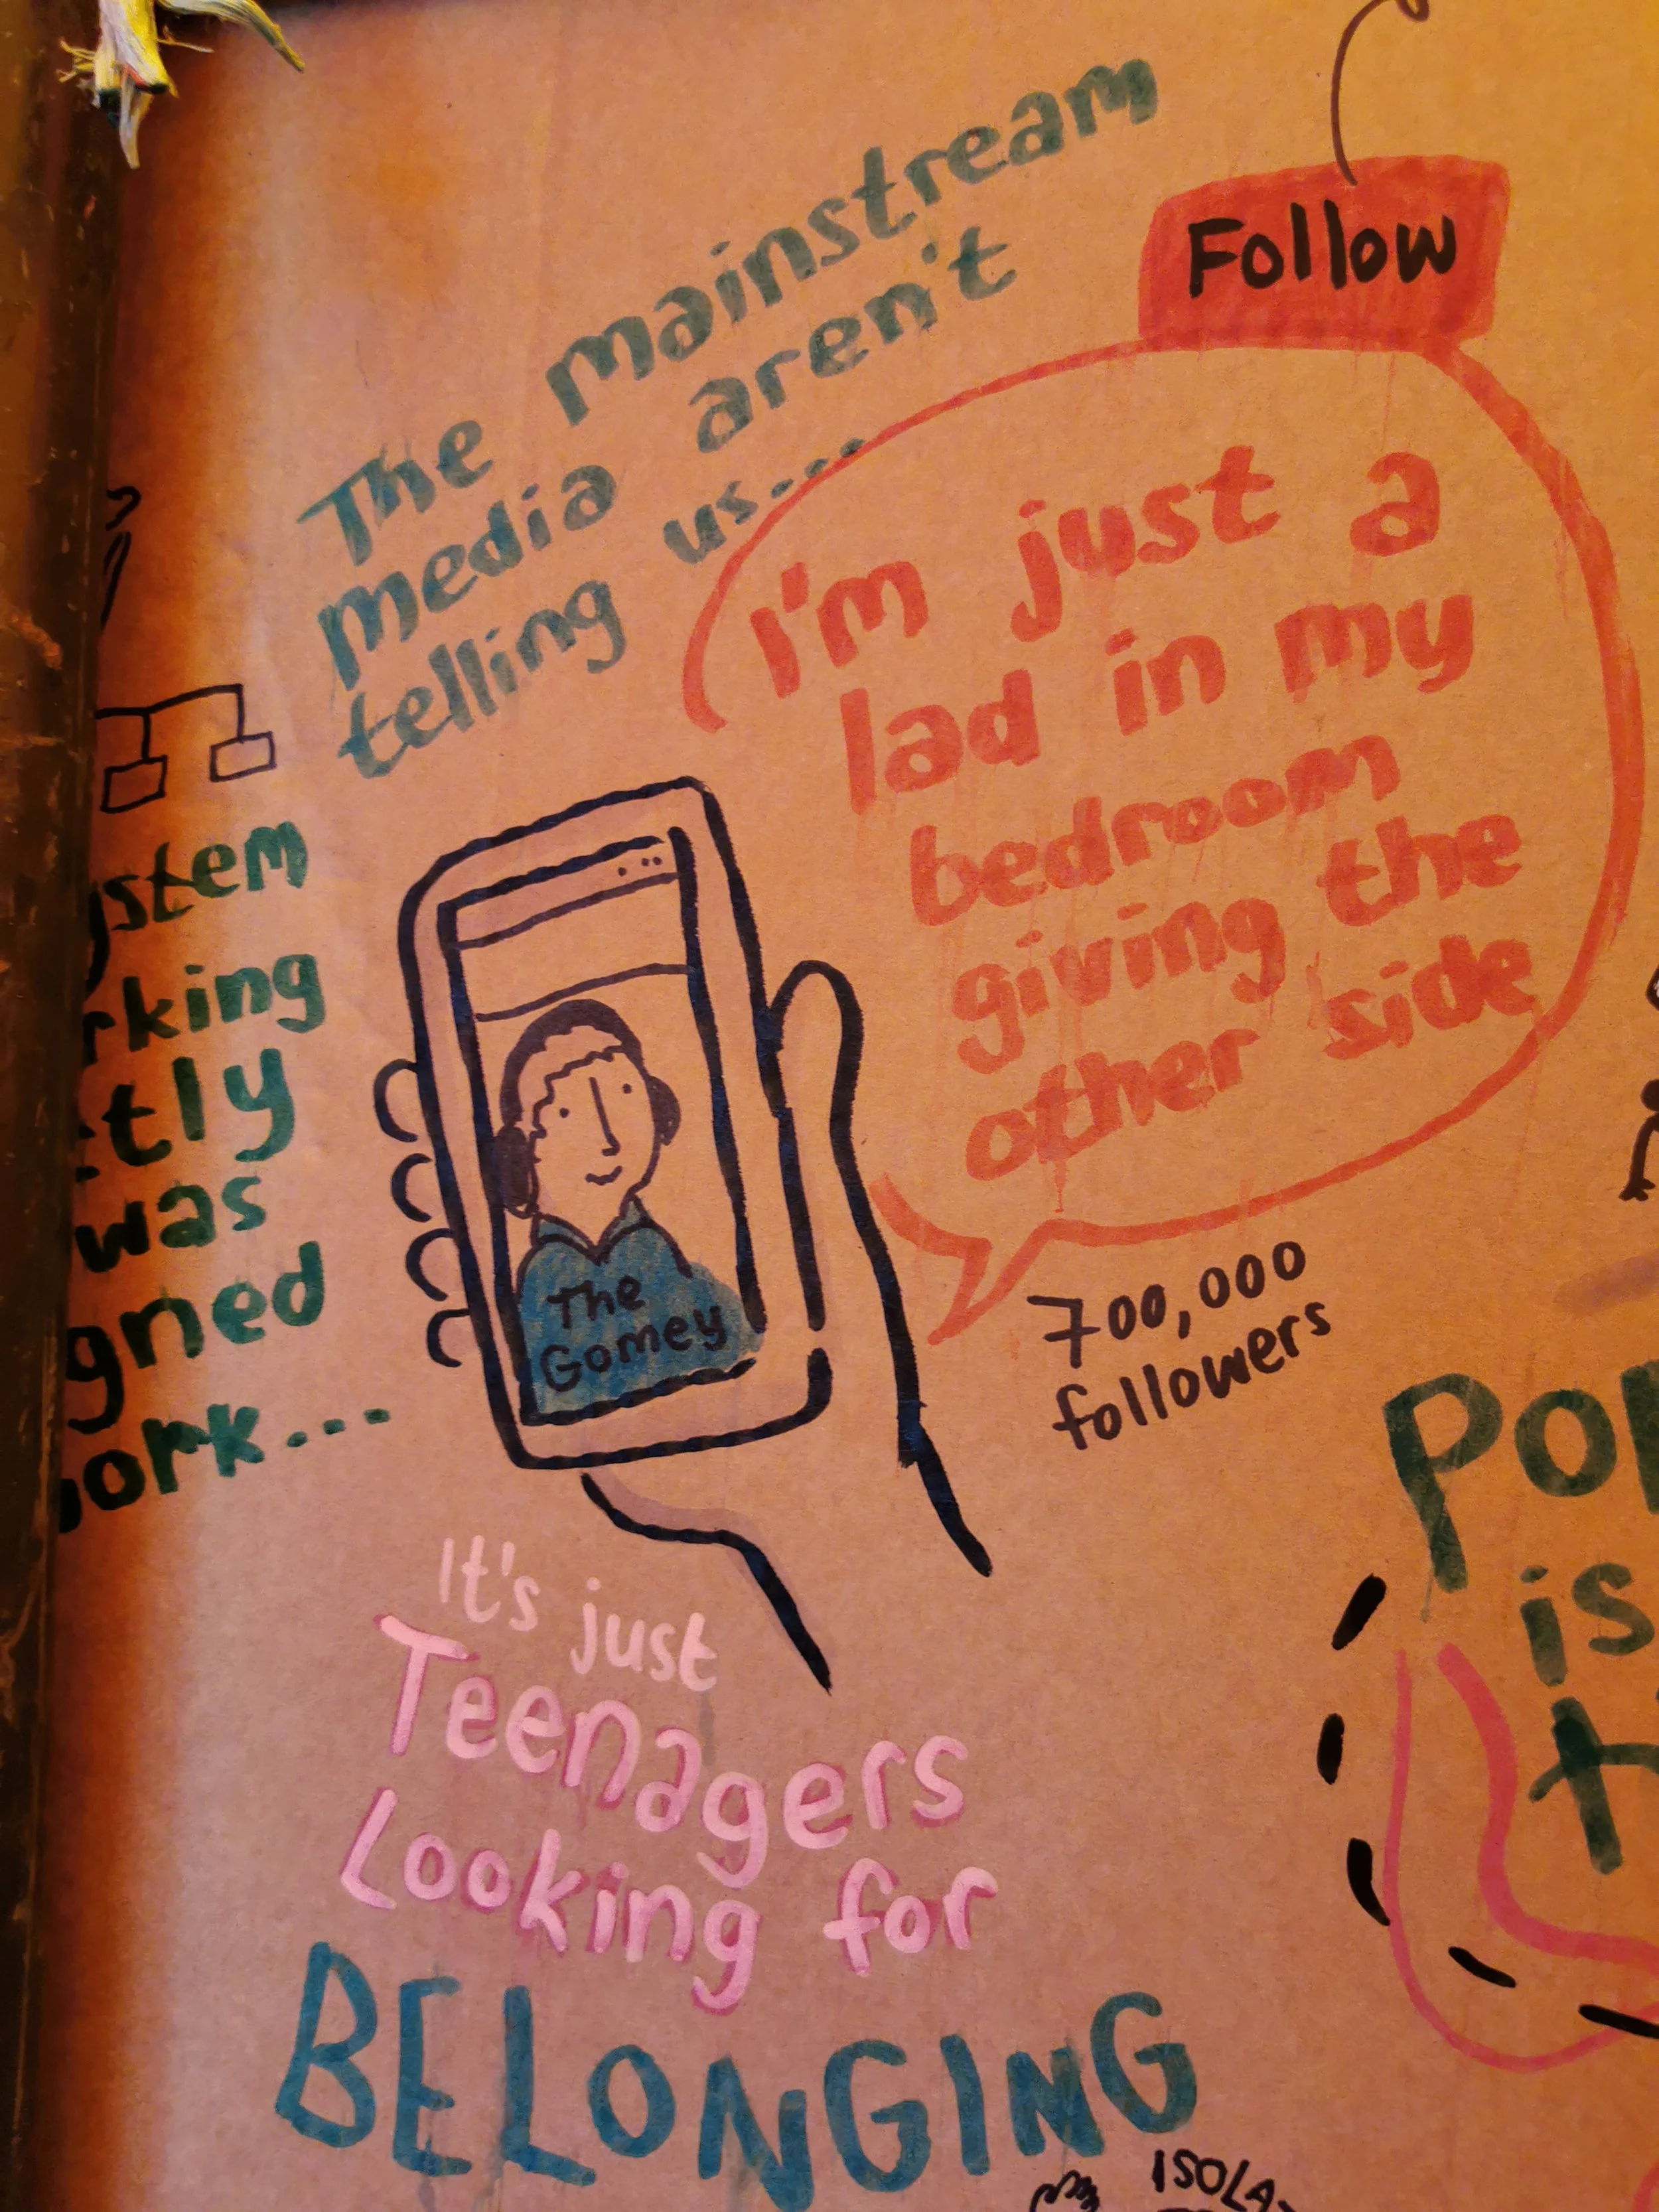 The mainstream
media aren't
telling us...
Follow
I'm just a
lad in my
bedroom
giving the
other side
The
Gomey
700,000
followers
was
is
It's just
Teenagers
Looking for
BELONGING